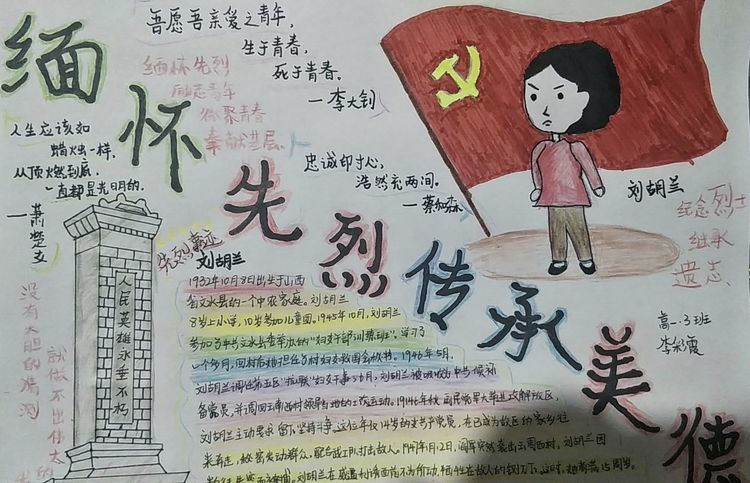 缅怀先烈
传承美德
吾愿吾亲爱之青年,
生于青春,
死于青春。
—李大钊
缅怀先烈
励志青年
凝聚青春
奉献基层
人生应该如
蜡烛一样,
从顶燃到底,
一直都是光明的。
—萧楚女
忠诚印寸心,
浩然充两间。
—蔡和森
刘胡兰
纪念烈士
继承
遗志、
高一.3班
李彩霞
人民英雄永垂不朽
没有大胆的猜测
就做不出伟大的
先烈事迹
刘胡兰
1932年10月8日出生于山西
省文水县的一个中农家庭。刘胡兰
8岁上小学,10岁参加儿童团。1945年10月,刘胡兰
参加了中共文水县委举办的“妇女干部训练班”,学习了
一个多月,回村后她担任了村妇女救国会秘书。1946年5月,
刘胡兰调任第五区“抗联”妇女干事;6月,刘胡兰被吸收为中共候补
备党员,并调回云周西村领导当地的土改运动。1946年秋,国民党军大举进攻解放区,
刘胡兰主动要求留下坚持斗争。这位年仅14岁的女共产党员,在已成为敌区的家乡往
来奔走,秘密发动群众,配合武工队打击敌人。1947年1月12日,阎军突然袭击云周西村,刘胡兰因
刘胡兰在威逼利诱面前
这时,她尚未满15周岁。